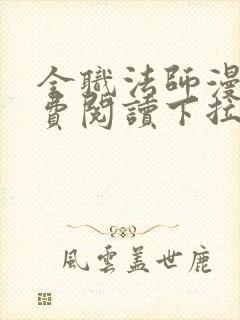 全職法師漫
費閱讀下拉
風雲蓋世鹿